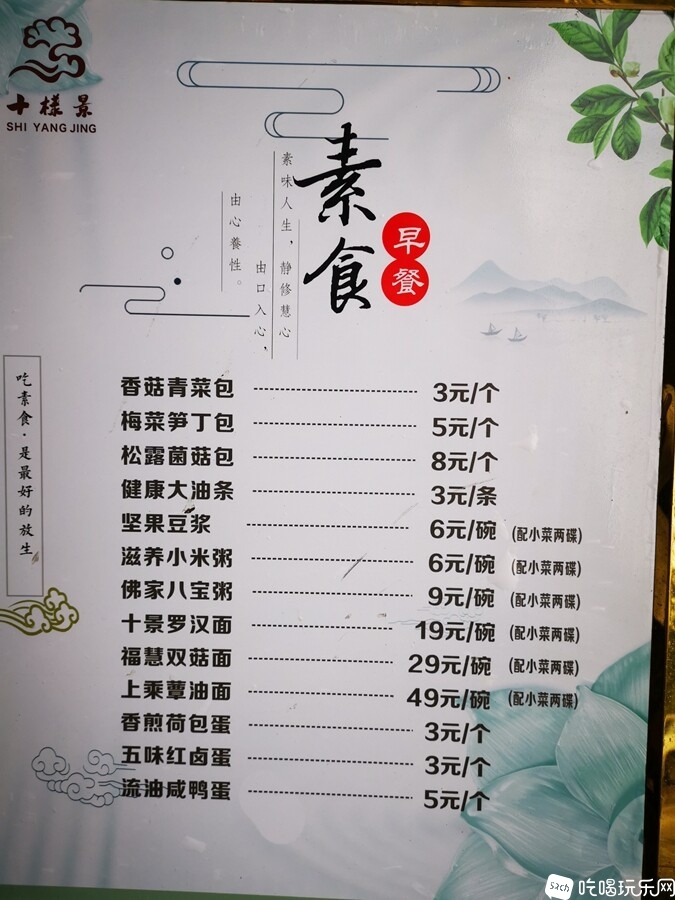 十樣景
SHI YANG JING
素食
早餐
素味人生，静修慧心
由口入心，
由心養性。
吃素食·是最好的放生
香菇青菜包 3元/个
梅菜笋丁包 5元/个
松露菌菇包 8元/个
健康大油条 3元/条
坚果豆浆 6元/碗 (配小菜两碟)
滋养小米粥 6元/碗 (配小菜两碟)
佛家八宝粥 9元/碗 (配小菜两碟)
十景罗汉面 19元/碗 (配小菜两碟)
福慧双菇面 29元/碗 (配小菜两碟)
上乘蕈油面 49元/碗 (配小菜两碟)
香煎荷包蛋 3元/个
五味红卤蛋 3元/个
流油咸鸭蛋 5元/个
52ch 吃喝玩乐网